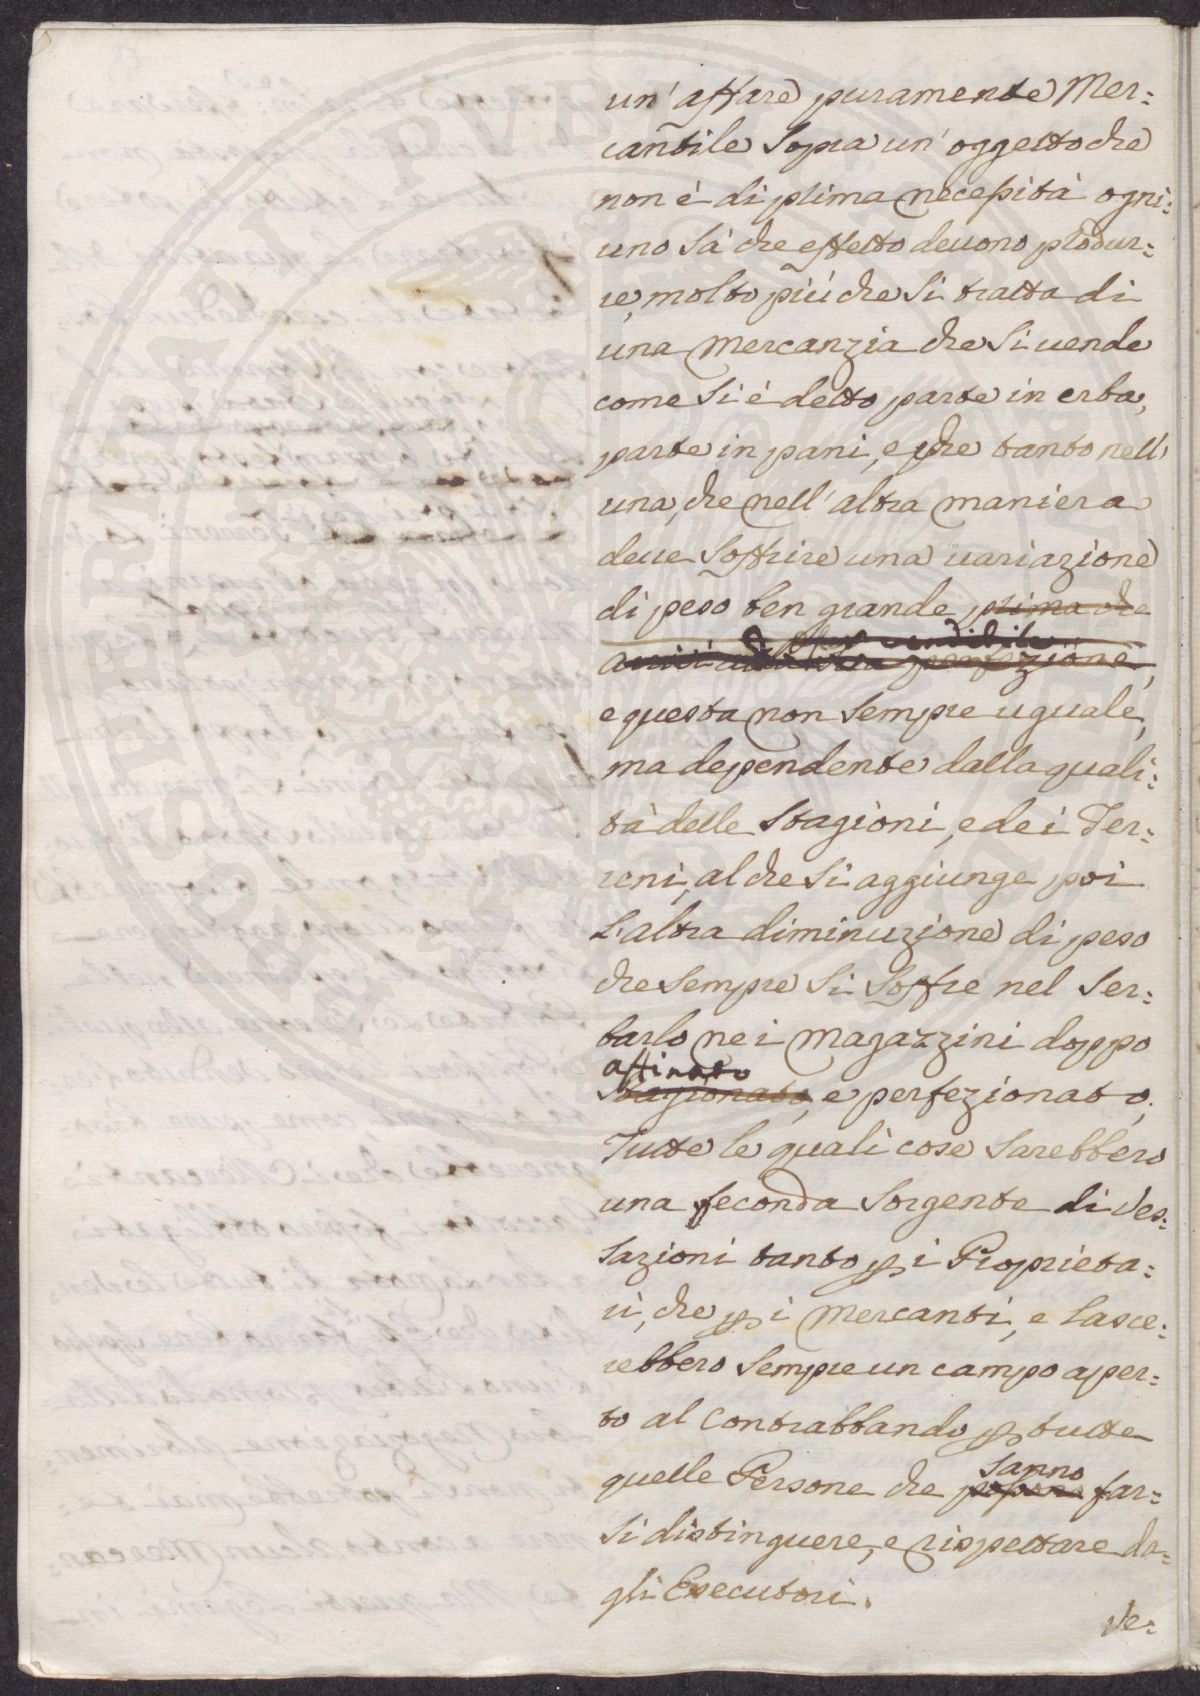 un' affare puramente Mer:
cantile Sopra un' oggetto che
non è di prima necessità ogni:
uno Sà che effetto devono produr:
re, molto più che Si tratta di
una Mercanzia che Si vende
come Si è detto parte in erba,
parte in pani, e che tanto nell'
una, che nell' altra maniera
deve Soffrire una variazione
di peso ben grande prima che
più vendibile
perfezione,
e questa non Sempre uguale,
ma dependente dalla quali:
tà delle Stagioni, e dei Ter:
reni, al che Si aggiunge poi
L'altra diminuzione di peso
che Sempre Si Soffre nel Ser:
barlo nei Magazzini doppo
affinato
Stagionato, e perfezionato;
Tutte le quali cose Sarebbero
una feconda Sorgente di Ves:
sazioni tanto p i Proprieta:
rj, che p i Mercanti, e Lasce:
rebbero Sempre un campo aper:
to al Contrabbando p tutte
quelle Persone che possono far:
Sanno
Si distinguere, e rispettare da:
gli Esecutori.
Ve: